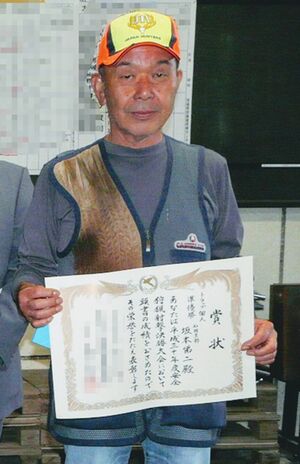 JAPAN HUNTERS
賞状
トラップ個人
準優勝
坂本第二殿
あなたは平成三十年度安全
狩猟射撃決勝大会において
頭書の成績をおさめたので
その栄誉をたたえ表彰します